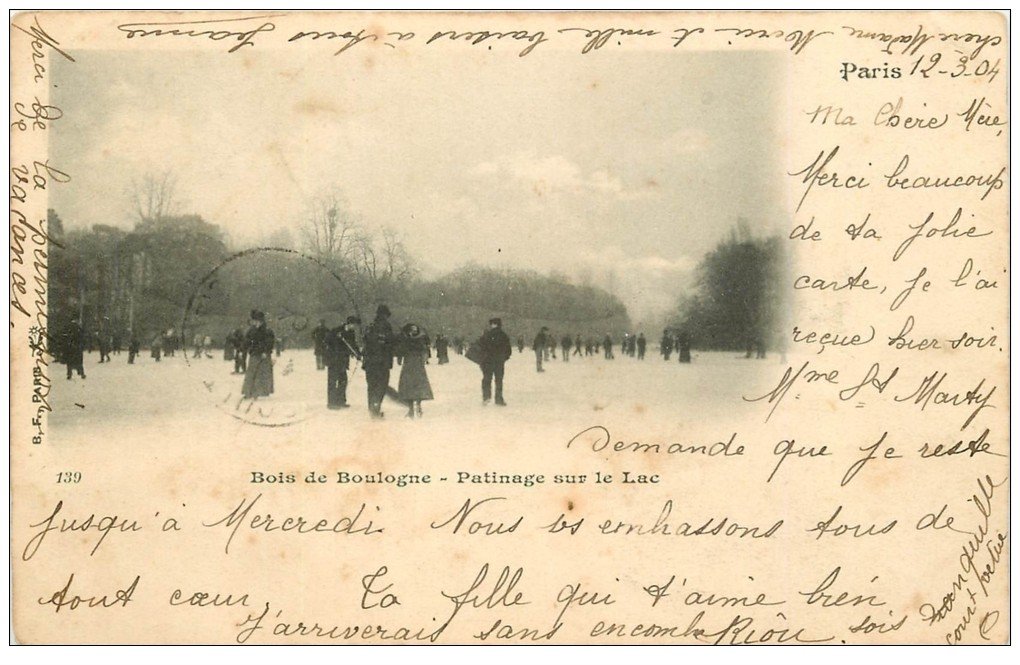 Paris 12-3-04
Ma Chère Mère,
Merci beaucoup
de ta jolie
carte, je l'ai
reçue hier soir.
Mme St Marty
Demande que je reste
jusqu'à Mercredi. Nous vs embrassons tous de
tout cœur. Ta fille qui t'aime bien
J'arriverais sans encomb Riou. sois tranquille
court
139
Bois de Boulogne - Patinage sur le Lac
B. F., PARIS
Merci de la
de vacances
chère Madame Merci et mille baisers à tous Jeanne